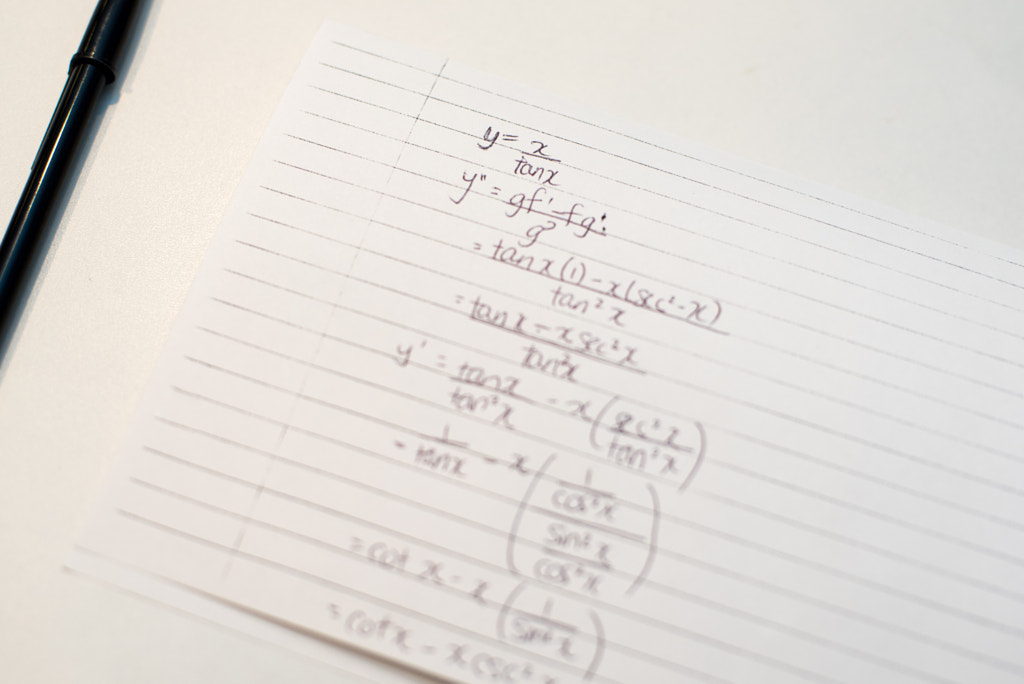 y = x/tanx
y" = gf' - fg'/g²
= tanx(1) - x(sec²-x)/tan²x
= tanx - x sec²x/tan²x
y' = tanx/tan²x - x(sec²x/tan²x)
= 1/tanx - x(1/cos²x/sin²x/cos²x)
= cot x - x(1/sin²x)
= cotx - x csc²x